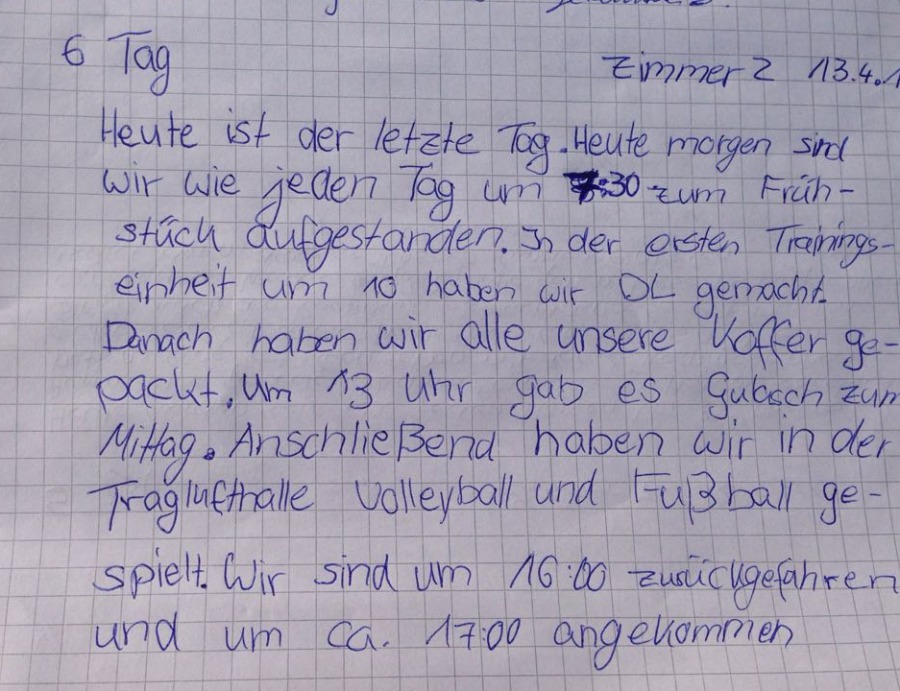 6 Tag
Zimmer 2 13.4.1
Heute ist der letzte Tag. Heute morgen sind
wir wie jeden Tag um 7:30 zum Früh-
stück aufgestanden. In der ersten Trainings-
einheit um 10 haben wir DL gemacht.
Danach haben wir alle unsere Koffer ge-
packt. Um 13 Uhr gab es Gulasch zum
Mittag. Anschließend haben wir in der
Traglufthalle Volleyball und Fußball ge-
spielt. Wir sind um 16:00 zurückgefahren
und um ca. 17:00 angekommen